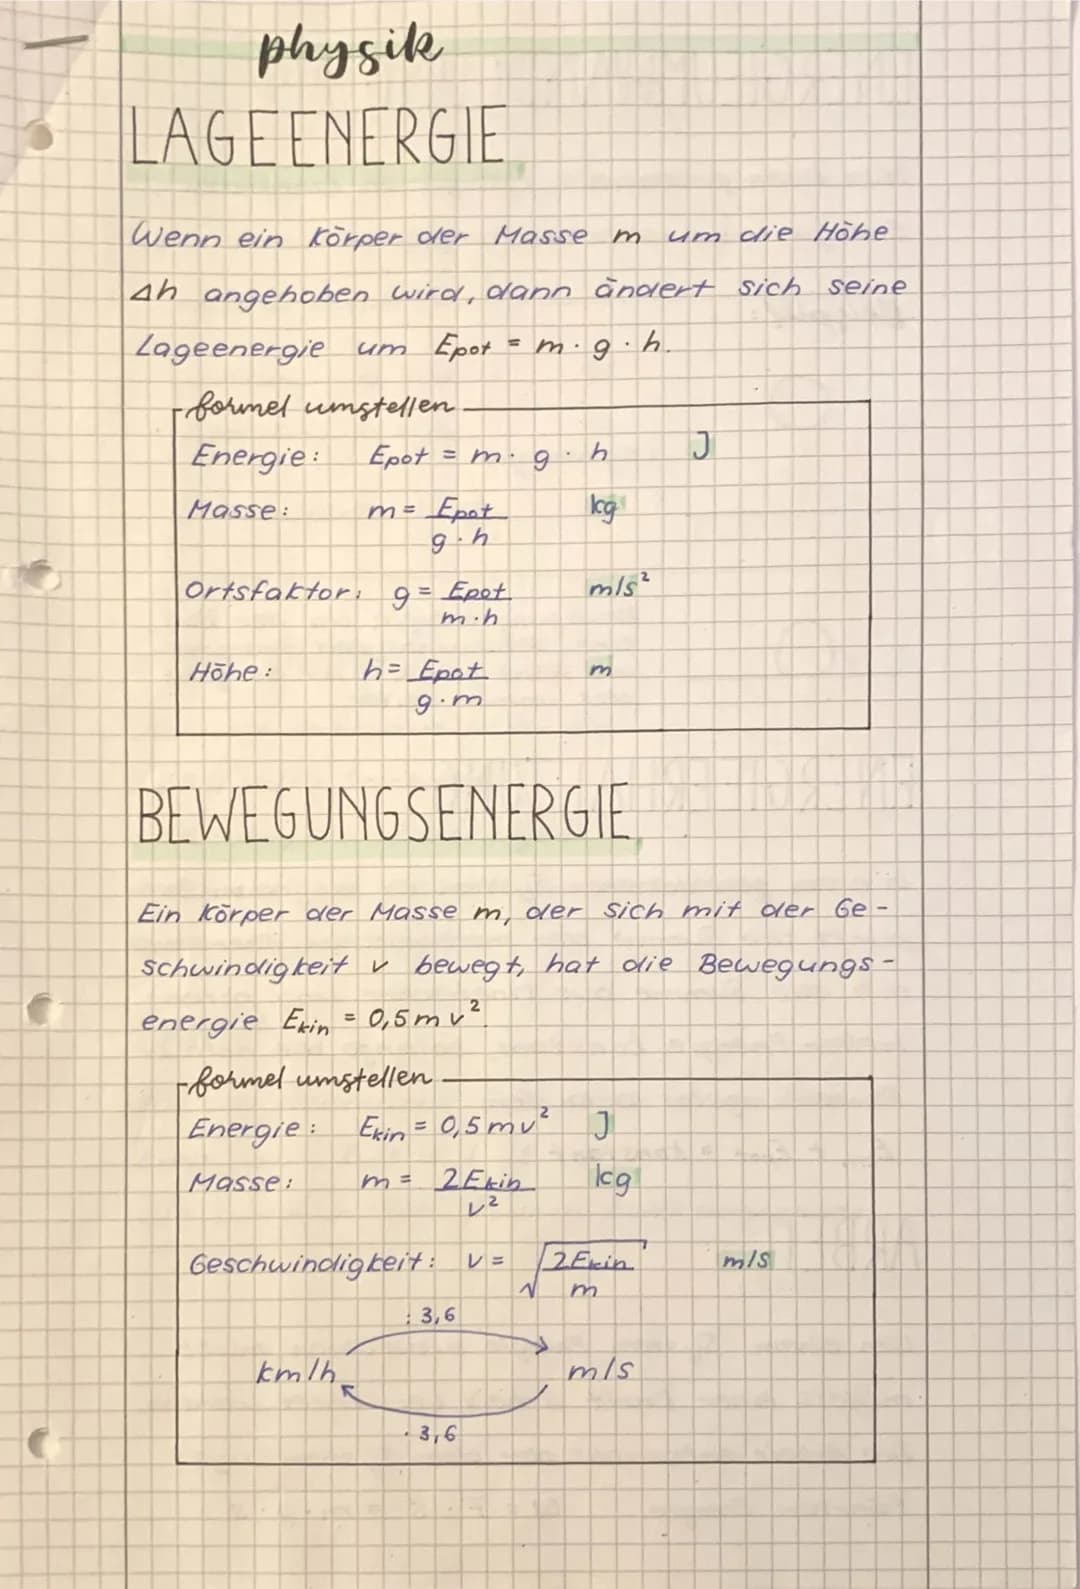 physik
LAGEENERGIE
Wenn ein Körper der Masse m um die Höhe
Δh angehoben wird, dann ändert sich seine
Lageenergie um Epot = m · g · h.
formel umstellen
Energie: Epot = m · g · h J
Masse: m = Epot / g · h kg
Ortsfaktor: g = Epot / m · h m/s²
Höhe: h = Epot / g · m m
BEWEGUNGSENERGIE
Ein Körper der Masse m, der sich mit der Ge-
schwindigkeit v bewegt, hat die Bewegungs-
energie Ekin = 0,5 m v².
formel umstellen
Energie: Ekin = 0,5 m v² J
Masse: m = 2Ekin / v² kg
Geschwindigkeit: v = √ 2Ekin / m m/s
: 3,6
km/h m/s
· 3,6